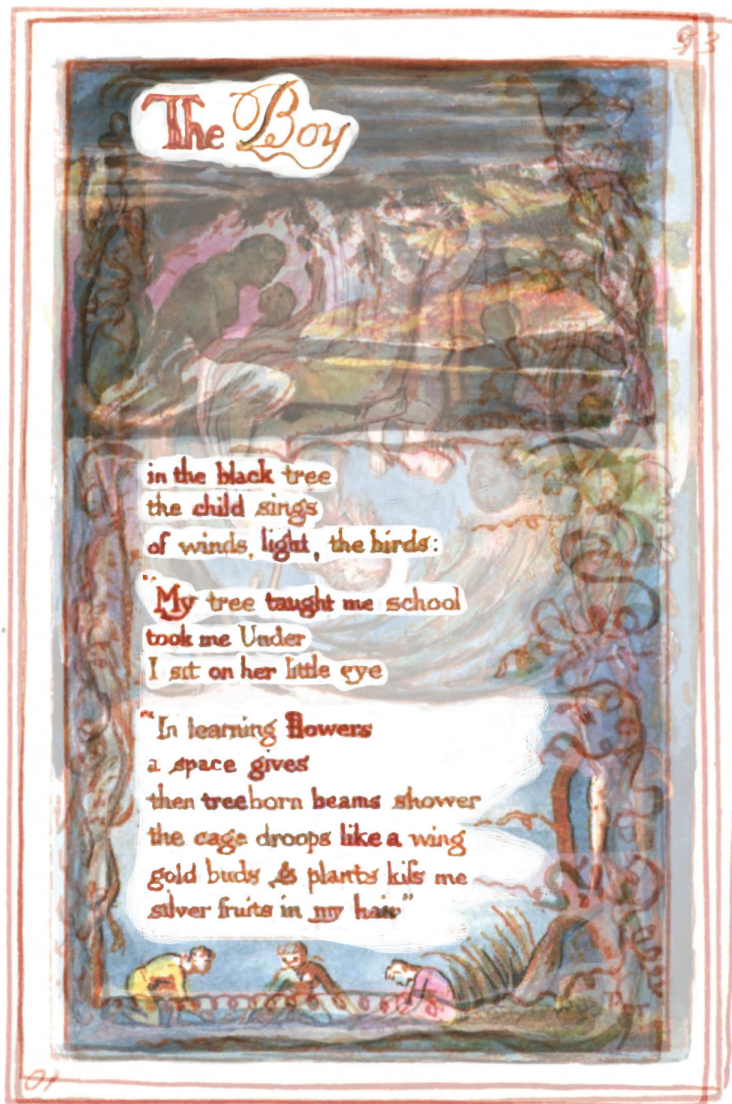 The Boy
in the black tree
the child sings
of winds, light, the birds:
"My tree taught me school
took me Under
I sit on her little eye
"In learning flowers
a space gives
then treeborn beams shower
the cage droops like a wing
gold buds & plants kiſs me
silver fruits in my hair"